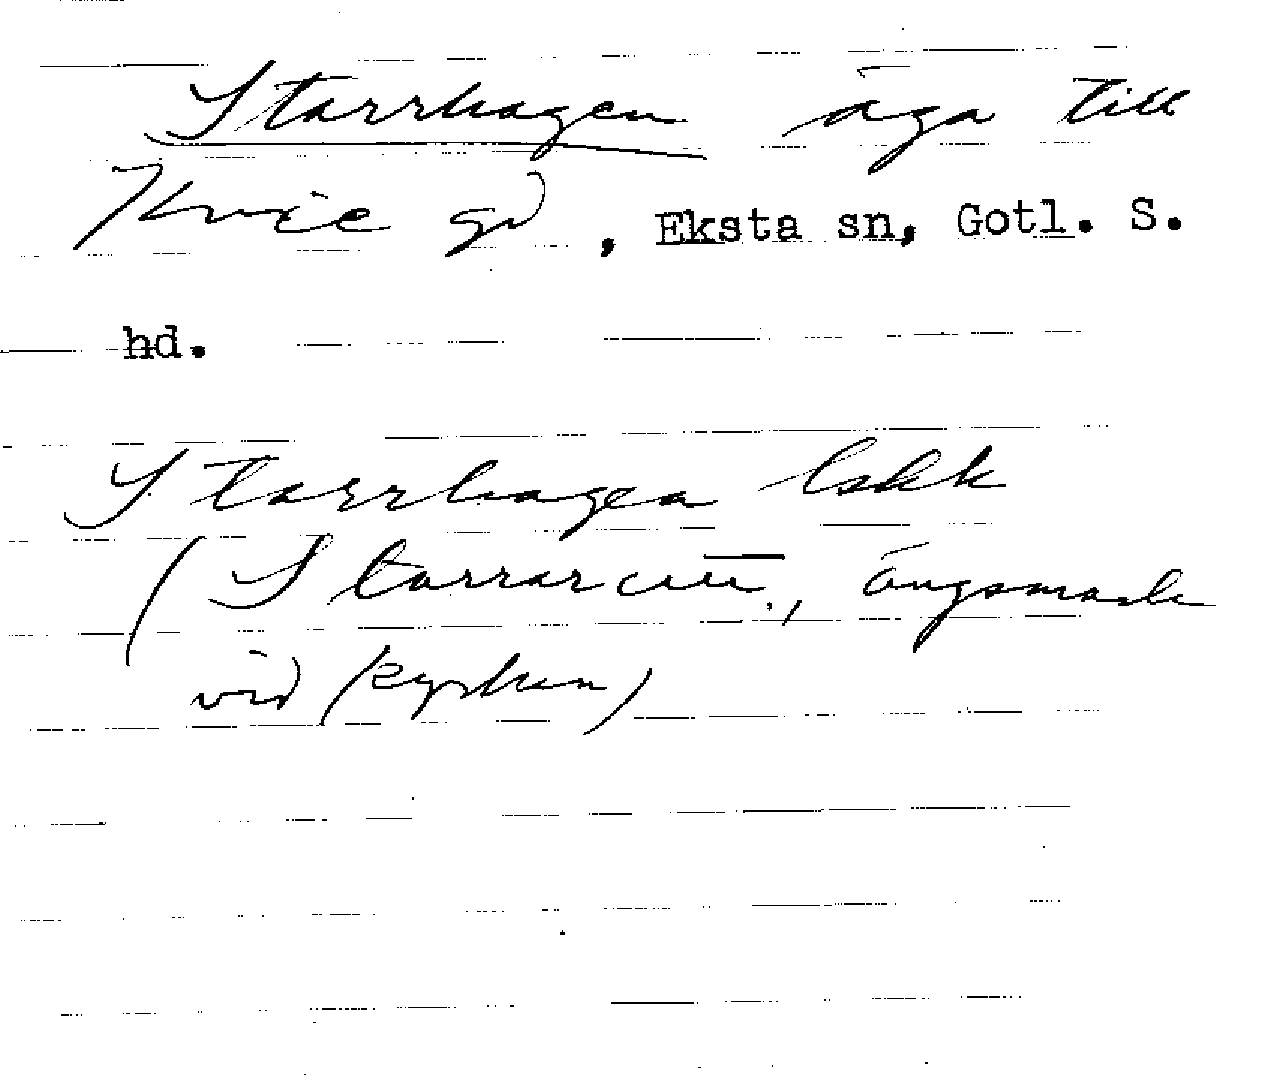 Starrhagen äga till
Kvie gd, Eksta sn, Gotl. S.
hd.
Starrhagen lskk
(Starrar, ängsmark
vid kyrkan)